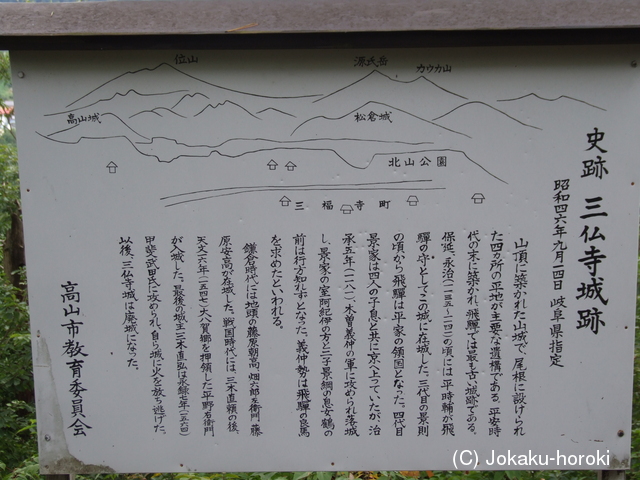 位山
源氏岳
カウカ山
高山城
松倉城
北山公園
三福寺町
史跡 三仏寺城跡
昭和四六年九月二四日 岐阜県指定
山頂に築かれた山城で、尾根に設けられ
た四カ所の平地が主要な遺構である。平安時
代の末に築かれ、飛騨では最も古い城跡である。
保延、永治(一一三五〜一一四二)の頃には平時輔が飛
騨の守としてこの城に在城した。三代目の景則
の頃から飛騨は平家の領国となった。四代目
景家は四人の子息と共に京へ上っていたが、治
承五年(一一八一)、木曽義仲の軍に攻められ落城
し、景家の室阿紀伊の方と二子景綱の息女鶴の
前は行方知れずとなった。義仲勢は飛騨の良馬
を求めたといわれる。
鎌倉時代には地頭の藤原朝高、畑六郎左衛門、藤
原安高が在城した。戦国時代には、三木直頼の後、
天文一六年(一五四七)大八賀郷を押領した平野右衛門
が入城した。最後の城主三木直弘は永禄七年(一五六四)
甲斐武田氏に攻められ、自ら城に火を放ち逃げた。
以後、三仏寺城は廃城になった。
高山市教育委員会
(C) Jokaku-horoki